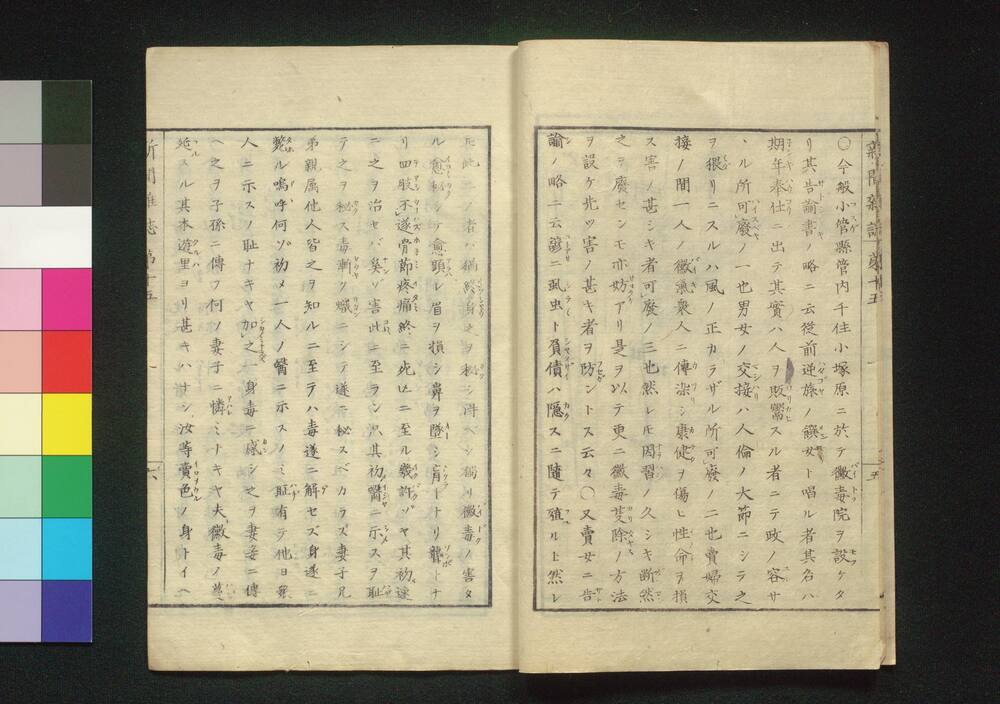 新聞雜誌 第十五
五
〇今般小管縣管内千住小塚原ニ於テ黴毒院ヲ設ケタ
リ其告諭書ノ略ニ云從前逆旅ノ饌女ト唱ル者其名ハ
期年奉仕ニ出テ其實ハ人ヲ販鬻スル者ニテ政ノ容サ
ヽル所可廢ノ一也男女ノ交接ハ人倫ノ大節ニシテ之
ヲ猥リニスルハ風ノ正カラザル所可廢ノ二也賣婦交
接ノ間一人ノ黴氣衆人ニ傳染シ康健ヲ傷ヒ性命ヲ損
ス害ノ甚シキ者可廢ノ三也然レ𪜈因習ノ久シキ断然
之ヲ廢センモ亦妨アリ是ヲ以テ更ニ黴毒芟除ノ方法
ヲ設ケ先ツ害ノ甚キ者ヲ防ントス云々〇又賣女ニ告
諭ノ略ニ云諺ニ虱虫ト負債ハ隱スニ隨テ殖ルト然レ
𪜈此二ノ者ハ猶終身之ヲ秘シ得ベシ獨リ黴毒ノ害タ
ル愈秘シテ愈顕レ眉ヲ損シ鼻ヲ墜シ盲トナリ聾トナ
リ四肢不遂骨節疼痛終ニ死亡ニ至ル幾許ゾヤ其初速
ニ之ヲ治セバ奚ゾ害此ニ至ラン只其初醫ニ示スヲ恥
テ之ヲ秘ス毒漸ク熾ニシテ遂ニ秘スベカラズ妻子兄
弟親属他人皆之ヲ知ルニ至テハ毒遂ニ解セズ身遂ニ
斃ル嗚呼何ゾ初メ一人ノ醫ニ示スノミ恥有テ他日衆
人ニ示スノ恥ナキヤ加之一身毒ニ感シ之ヲ妻妾ニ傳
ヘ之ヲ子孫ニ傳フ何ノ妻子ニ憐ミナキヤ夫黴毒ノ蔓
延スル其本遊里ヨリ甚キハナシ汝等賣色ノ身トイヘ
新聞雜誌 第十五
六